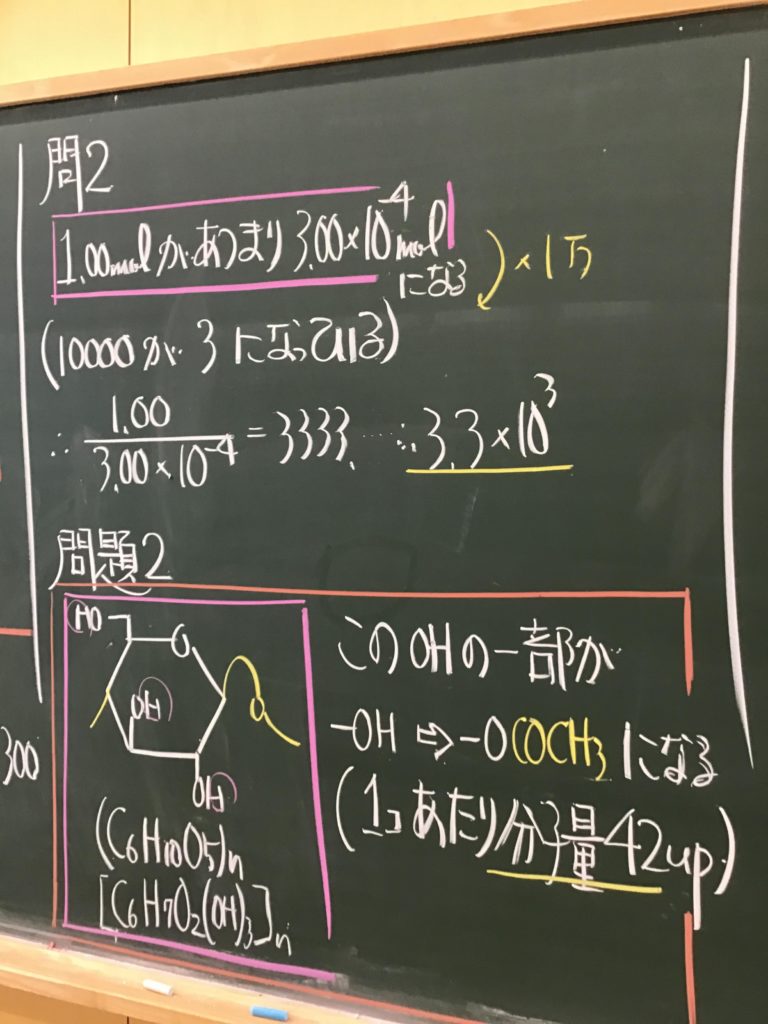 問2
1.00molがあつまり3.00×10⁻⁴mol
になる
×1万
(10000が3になっている)
∴ 1.00/3.00×10⁻⁴ = 3333.…… ∴ 3.3×10³
問題2
HO
O
OH
O
OH
(C6H10O5)n
[C6H7O2(OH)3]n
このOHの一部が
-OH ⇨ -OCOCH3になる
(1コあたり分子量42up)
300